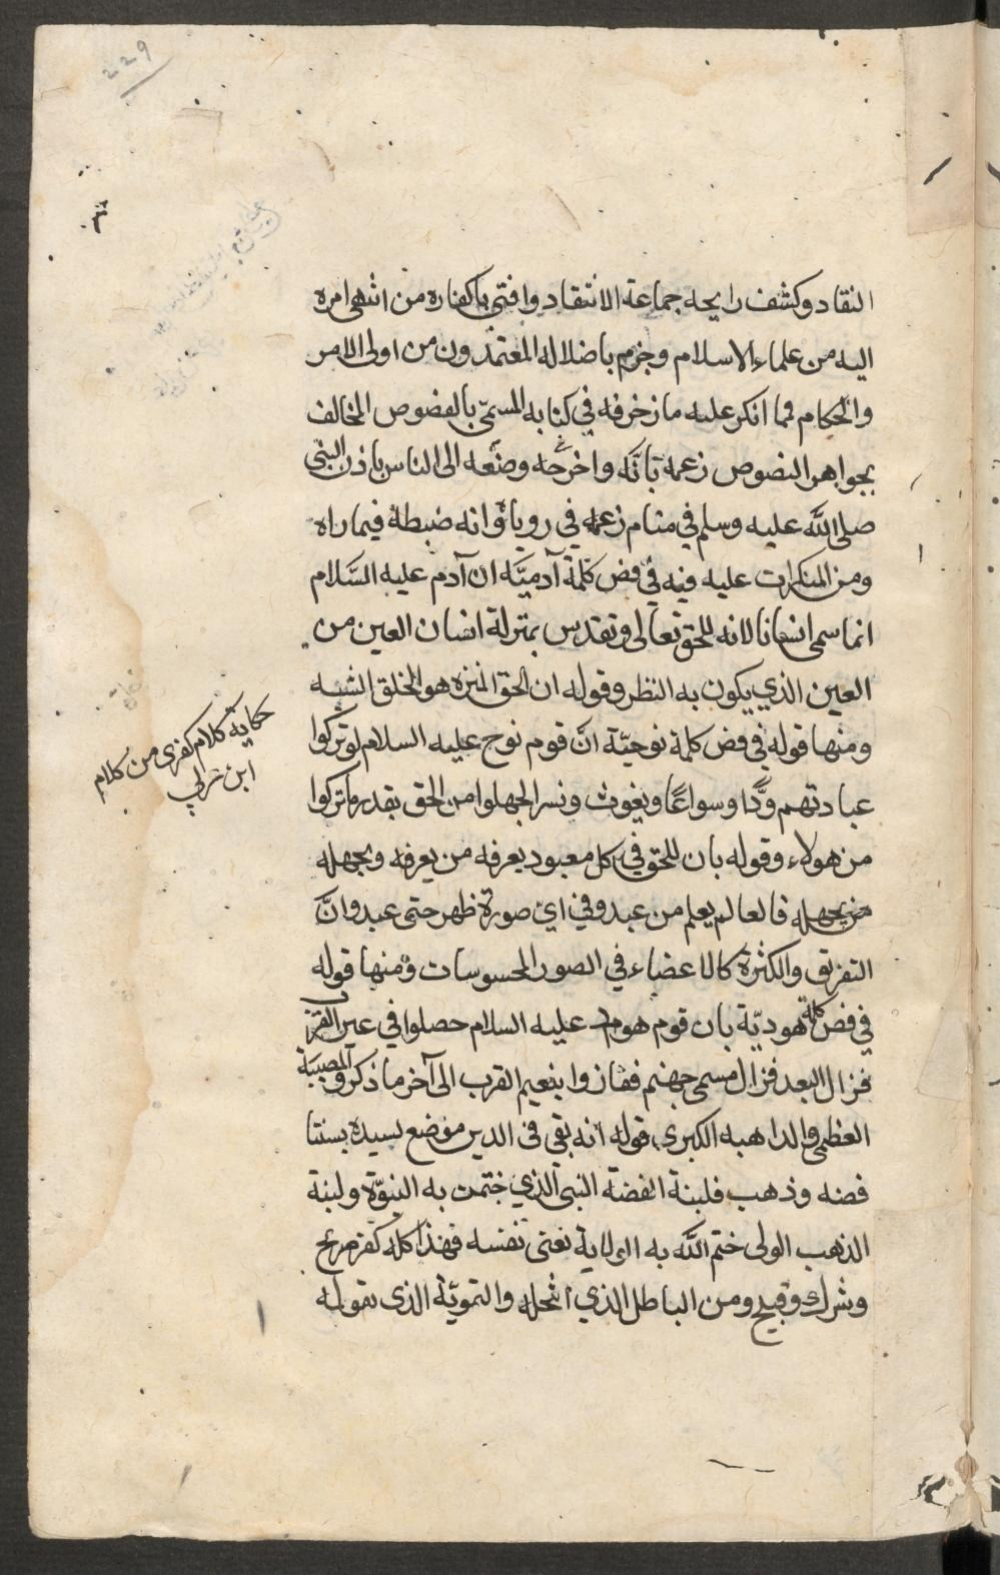 ٢٢٩
النقاد وكشف رايحه جماعة الانتقاد وافتى باكفاره من انتهى امره
اليه من علماء الاسلام وجزم باضلاله المعتمدون من اولى الامر
والحكام فما انكر عليه ما زخرفه في كتابه المسمّى بالفصوص المخالف
بجواهر النصوص زعمه بانّه واخرجه وضعه الى الناس باذن النبي
صلى الله عليه وسلم في منام زعمه في روياؤ انه ضبطة فيما راه
ومن المنكرات عليه فيه في فص كلمة آدميّه ان آدم عليه السَّلام
انما سمى انسانا لانه للحق تعالى وتقدس بمنزلة انسان العين من
العين الذي يكون به النظر وقوله ان الحق المنزه هو الخلق الشبه
ومنها قوله في فص كلمة نوحيّة انّ قوم نوح عليه السلام لو تركوا
عبادتهم ودًّا وسواعًا ويغوث ونسرا لجهلوا من الحق بقدر ما تركوا
من هولاء وقوله بان للحق في كل معبود يعرفه من يعرفه ويجهله
من يجهله فالعالم يعلم من عبد وفي اي صورة ظهر حتى عبد وانّ
التفريق والكثرة كالاعضاء في الصور المحسوسات ومنها قوله
في فص كلمة هوديّة بان قوم هود عليه السلام حصلوا في عين القرب
فزال البعد فزال مسمى جهنم ففازوا بنعيم القرب الى آخر ما ذكر والمصيبة
العظمى والداهيه الكبرى قوله انه بقى في الدين موضع لسيده بستنا
فضه وذهب فلبنة الفضة النبي الذي ختمت به النبوّة ولبنة
الذهب الولى ختم الله به الولاية يعنى نفسه فهذا كله كفر صريح
وشرك وقبيح ومن الباطل الذي انتحله والتمويّة الذى يقوله
حكاية كلام كفرى من كلام
ابن